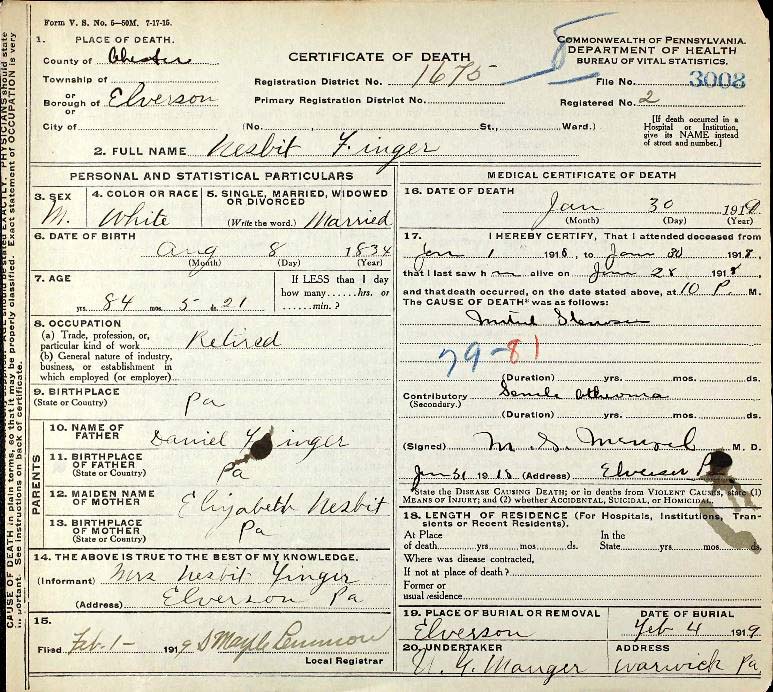 Form V. S. No. 5—50M. 7-17-15.
1. PLACE OF DEATH.
County of Chester
Township of
or
Borough of Elverson
or
City of (No. , St., Ward.)
CERTIFICATE OF DEATH
Registration District No. 1675
Primary Registration District No.
COMMONWEALTH OF PENNSYLVANIA.
DEPARTMENT OF HEALTH
BUREAU OF VITAL STATISTICS.
File No. 3008
Registered No. 2
[If death occurred in a
Hospital or Institution,
give its NAME instead
of street and number.]
2. FULL NAME Nesbit Finger
PERSONAL AND STATISTICAL PARTICULARS
3. SEX M.
4. COLOR OR RACE White
5. SINGLE, MARRIED, WIDOWED
OR DIVORCED
(Write the word.) Married
6. DATE OF BIRTH
Aug 8 1834
(Month) (Day) (Year)
7. AGE
yrs. 84 mos. 5 ds. 21
If LESS than 1 day
how many......hrs. or
......min.?
8. OCCUPATION
(a) Trade, profession, or,
particular kind of work Retired
(b) General nature of industry,
business, or establishment in
which employed (or employer)
9. BIRTHPLACE
(State or Country) Pa
PARENTS
10. NAME OF
FATHER Daniel Finger
11. BIRTHPLACE
OF FATHER
(State or Country) Pa
12. MAIDEN NAME
OF MOTHER Elizabeth Nesbit
13. BIRTHPLACE
OF MOTHER
(State or Country) Pa
14. THE ABOVE IS TRUE TO THE BEST OF MY KNOWLEDGE.
(Informant) Mrs Nesbit Finger
(Address) Elverson Pa
15.
Filed Feb-1- 1919
Local Registrar
MEDICAL CERTIFICATE OF DEATH
16. DATE OF DEATH
Jan 30 191
(Month) (Day) (Year)
17. I HEREBY CERTIFY, That I attended deceased from
Jan 1 1918, to Jan 30 1918,
that I last saw h m alive on Jan 28 1918,
and that death occurred, on the date stated above, at 10 P. M.
The CAUSE OF DEATH* was as follows:
Mitral Stenosis
79-81
(Duration) yrs. mos. ds.
Contributory Senile Atheroma
(Secondary.)
(Duration) yrs. mos. ds.
(Signed) M. S. M. D.
Jan 31 1918 (Address) Elverson Pa
*State the DISEASE CAUSING DEATH; or in deaths from VIOLENT CAUSES, state (1)
MEANS OF INJURY; and (2) whether ACCIDENTAL, SUICIDAL, or HOMICIDAL.
18. LENGTH OF RESIDENCE (For Hospitals, Institutions, Tran-
sients or Recent Residents).
At Place In the
of death yrs. mos. ds. State yrs. mos. ds.
Where was disease contracted,
If not at place of death?
Former or
usual residence
19. PLACE OF BURIAL OR REMOVAL
Elverson
DATE OF BURIAL
Feb 4 1919
20. UNDERTAKER ADDRESS
Manger Warwick Pa